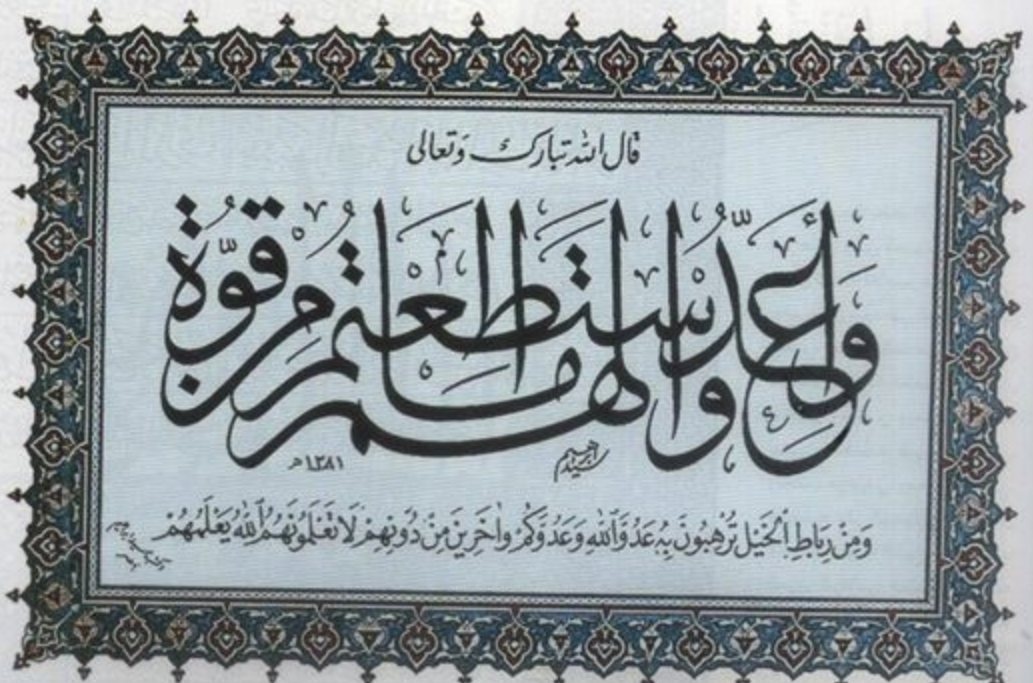 قال الله تبارك وَتعالى
وأَعِدُّوا لَهُم مَا اسْتَطَعْتُم مِنْ قُوَّةٍ
سيد إبراهيم
١٣٨١ هـ
وَمِنْ رِبَاطِ الْخَيْلِ تُرْهِبُونَ بِهِ عَدُوَّ اللهِ وَعَدُوَّكُمْ وَاخَرِينَ مِنْ دُونِهِمْ لَا تَعْلَمُونَهُمُ اللهُ يَعْلَمُهُمْ